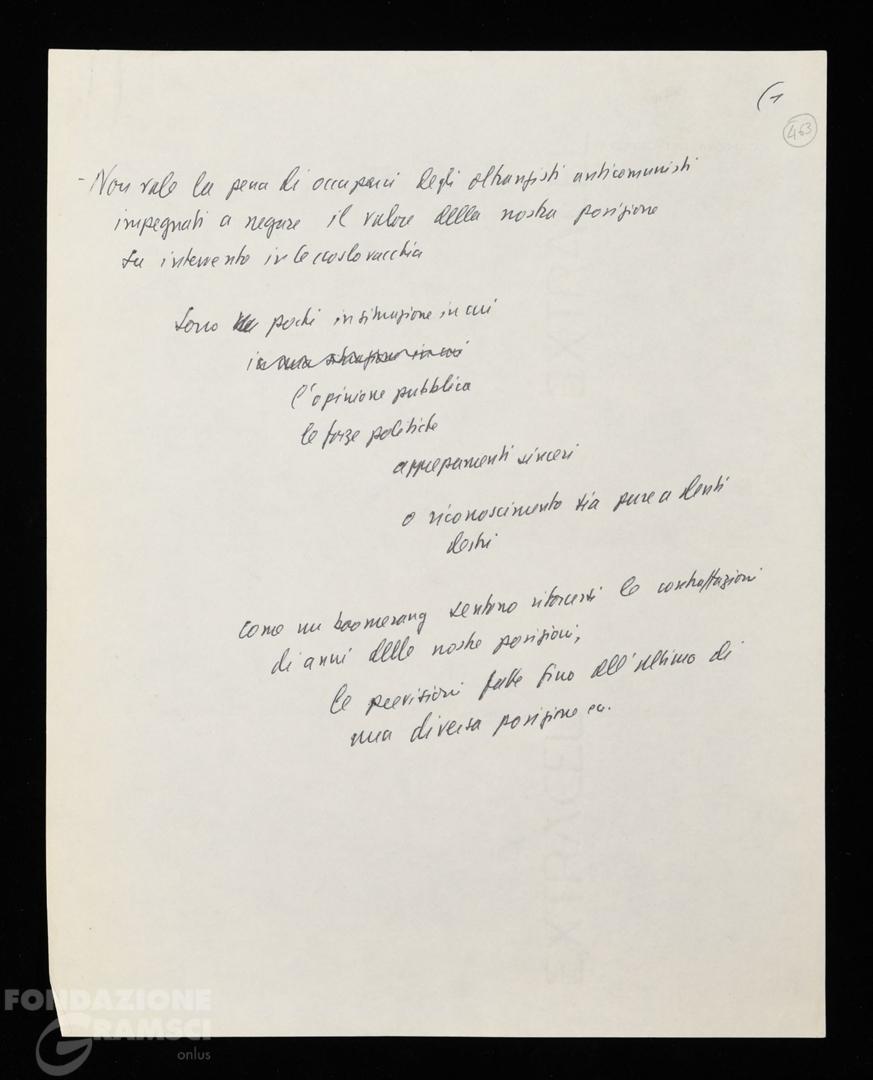 (1
463
- Non vale la pena di occuparci degli oltranzisti anticomunisti
impegnati a negare il valore della nostra posizione
su intervento in Cecoslovacchia
Sono pochi in situazione in cui
in una situazione in cui
l'opinione pubblica
le forze politiche
apprezzamenti sinceri
o riconoscimento sia pure a denti
stretti
Come un boomerang sentono ritorcersi le contraffazioni
di anni delle nostre posizioni,
le previsioni fatte fino all'ultimo di
una diversa posizione ecc.
FONDAZIONE
GRAMSCI
onlus